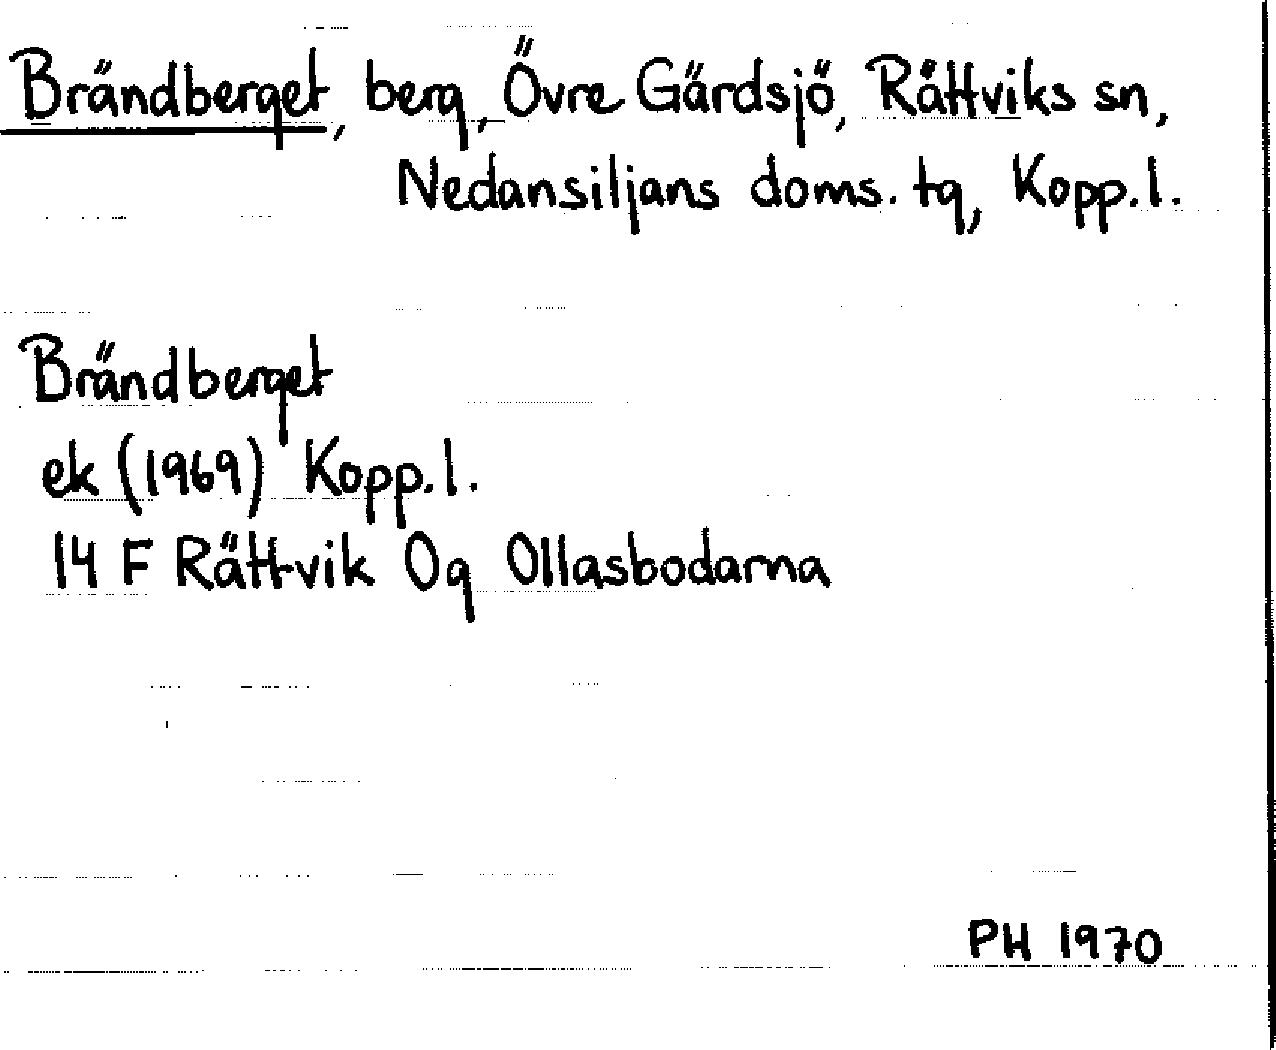 Brändberget, berg, Övre Gärdsjö, Rättviks sn,
Nedansiljans doms. tg, Kopp.l.
Brändberget
ek (1969) Kopp.l.
14 F Rättvik 0g Ollasbodarna
PH 1970